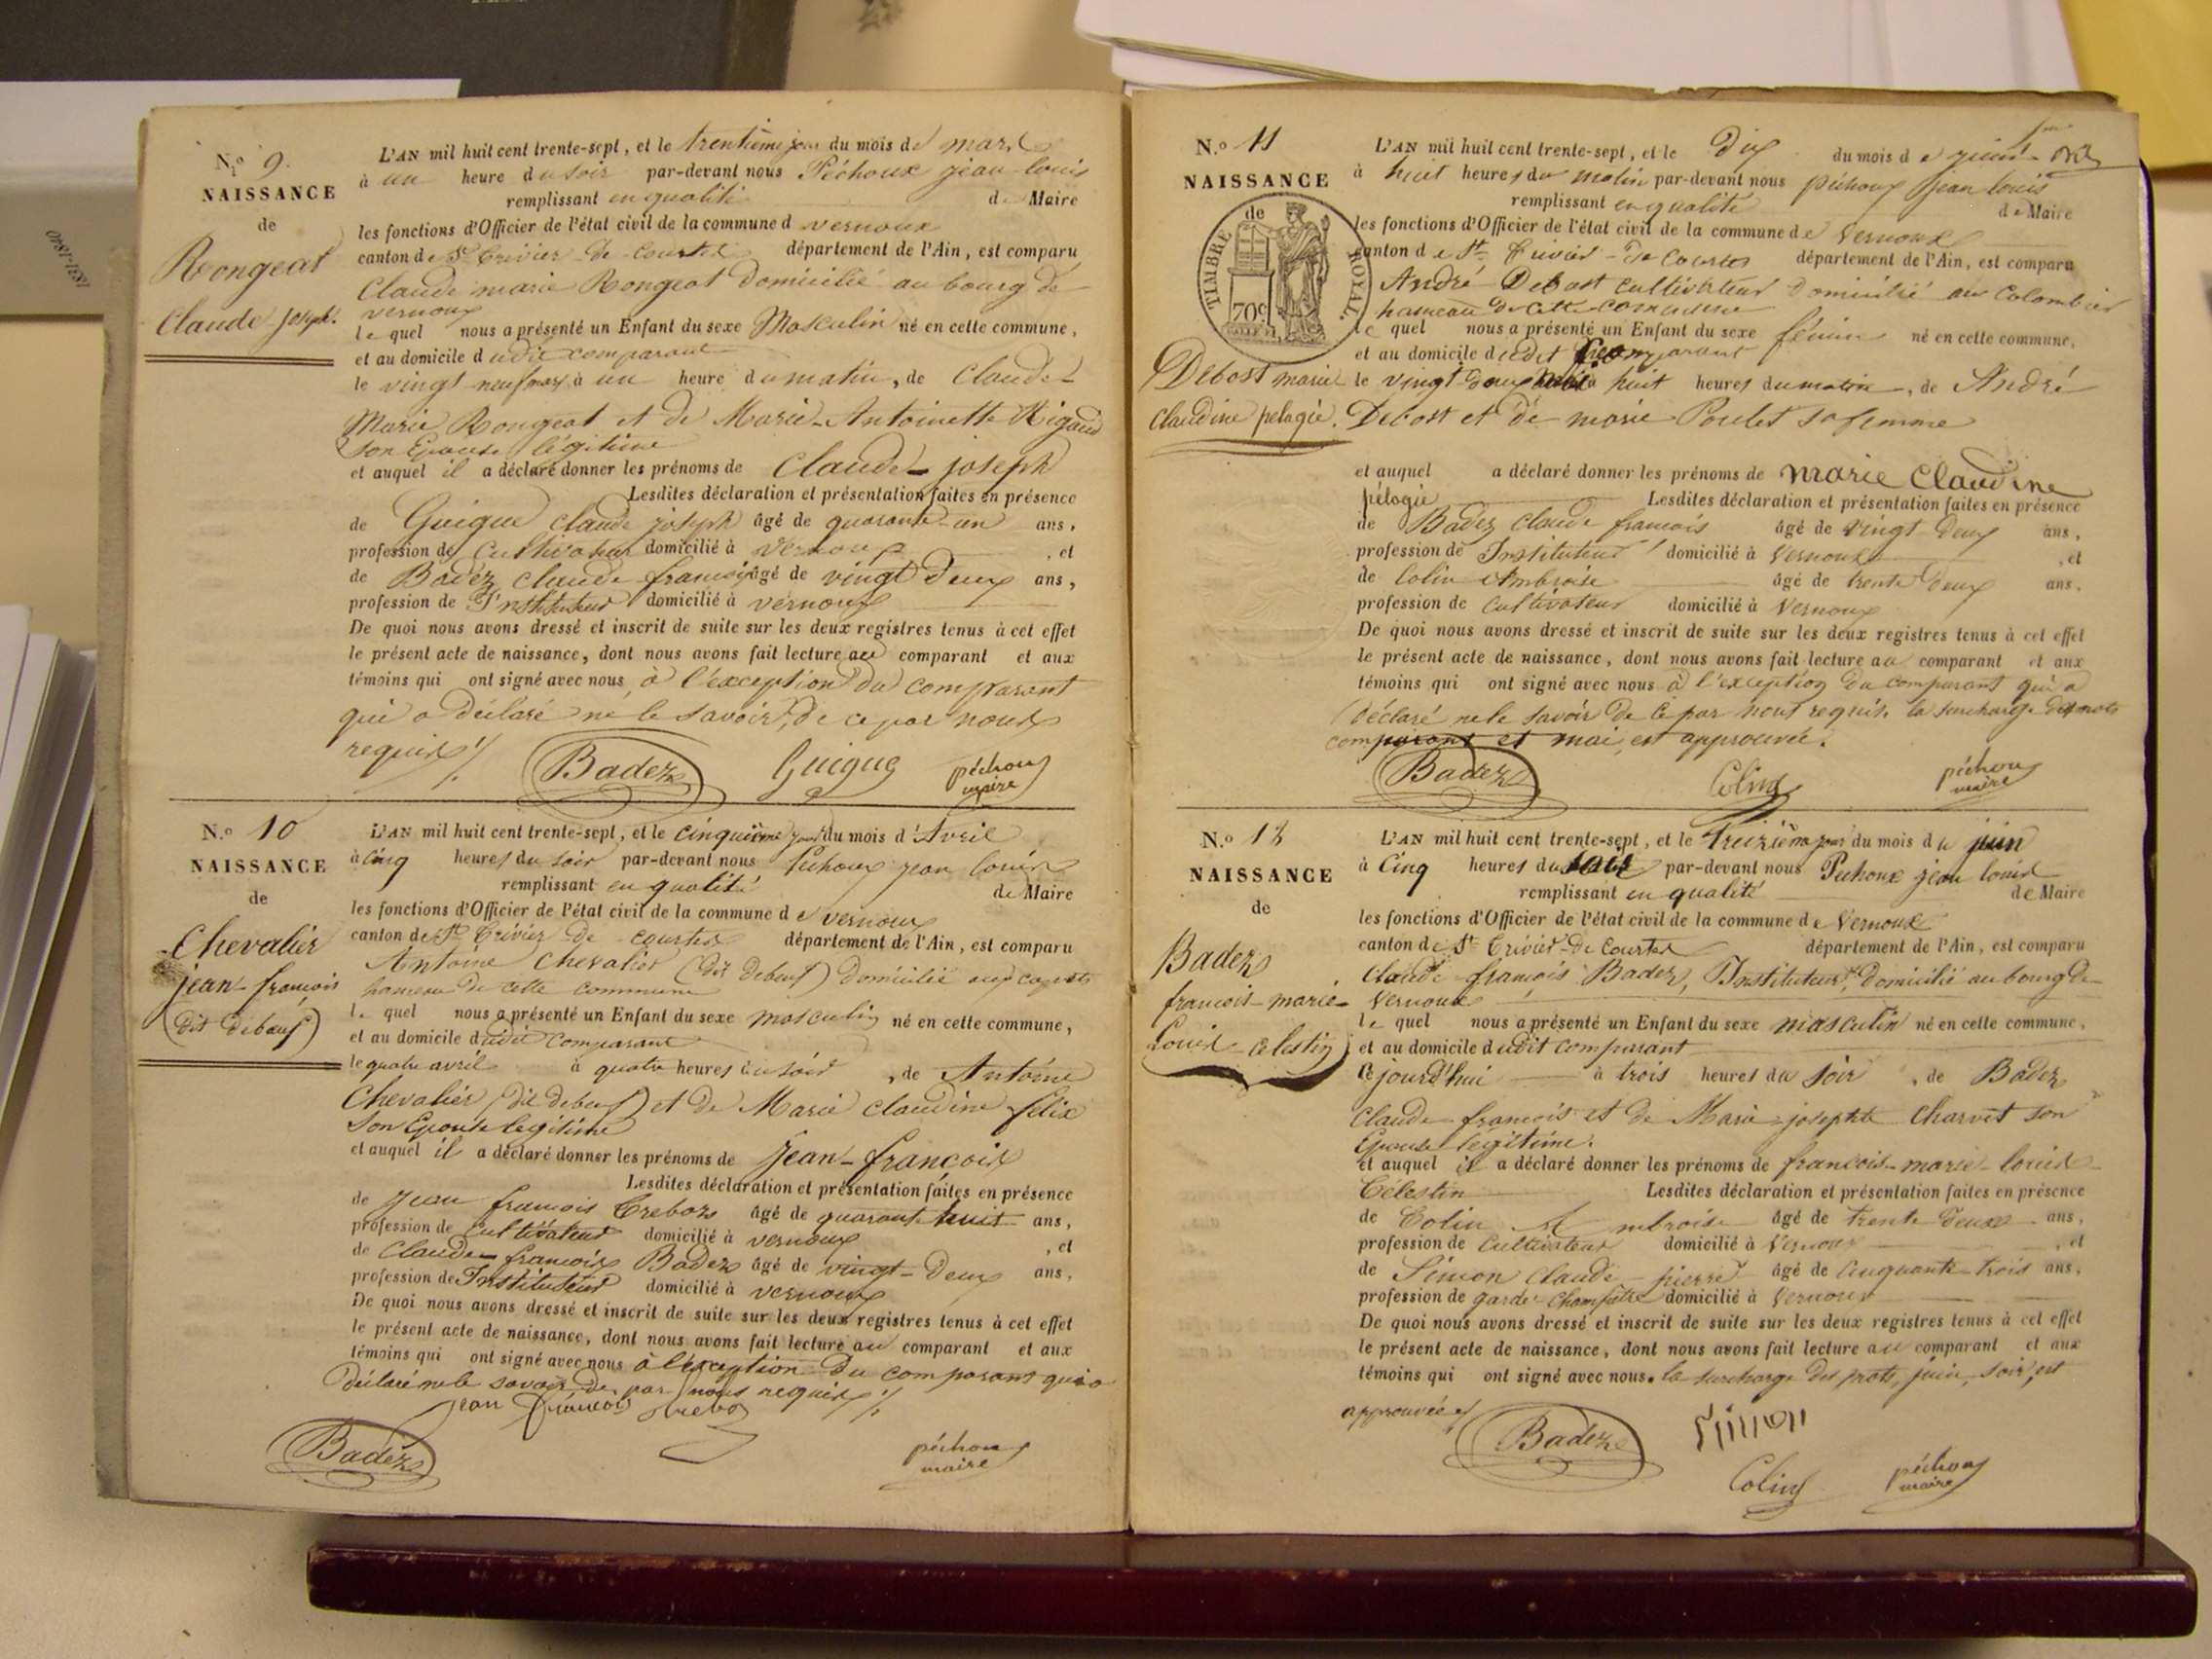 N.º 9.
NAISSANCE
de
Rongeat
Claude joseph.
L'AN mil huit cent trente-sept, et le trentième jour du mois de mars
à un heure du soir par-devant nous Péchoux jean louis
remplissant en qualité de Maire
les fonctions d'Officier de l'état civil de la commune d vernoux
canton de St Trivier de Courtes département de l'Ain, est comparu
Claude marie Rongeat Domicilié au bourg de
vernoux
le quel nous a présenté un Enfant du sexe Masculin né en cette commune,
et au domicile dudit comparant
le vingt neuf mars à un heure du matin, de Claude
Marie Rongeat et de Marie-Antoinette Rigaud
son Epouse légitime
et auquel il a déclaré donner les prénoms de Claude-joseph
Lesdites déclaration et présentation faites en présence
de Guigue claude joseph âgé de quarante-un ans,
profession de Cultivateur domicilié à Vernoux, et
de Badez claude françois âgé de vingt Deux ans,
profession de Instituteur domicilié à vernoux
De quoi nous avons dressé et inscrit de suite sur les deux registres tenus à cet effet
le présent acte de naissance, dont nous avons fait lecture au comparant et aux
témoins qui ont signé avec nous à l'exception du comparant
qui a déclaré ne le savoir, de ce par nous
requis ./.
Badez Guigue péchoux
maire
N.º 10
NAISSANCE
de
Chevalier
jean-françois
(dit debœuf)
L'AN mil huit cent trente-sept, et le cinquième jour du mois d'Avril
à cinq heures du soir par-devant nous Péchoux jean louis
remplissant en qualité de Maire
les fonctions d'Officier de l'état civil de la commune de vernoux
canton de St Trivier de courtes département de l'Ain, est comparu
Antoine Chevalier (dit debœuf) Domicilié aux
hameau de cette commune
le quel nous a présenté un Enfant du sexe masculin né en cette commune,
et au domicile dudit comparant
le quatre avril à quatre heures du soir, de Antoine
Chevalier (dit debœuf) et de Marie claudine félix
son Epouse légitime
et auquel il a déclaré donner les prénoms de jean-françois
Lesdites déclaration et présentation faites en présence
de jean françois Treboz âgé de quarante huit ans,
profession de Cultivateur domicilié à vernoux, et
de Claude-françois Badez âgé de vingt-Deux ans,
profession de Instituteur domicilié à vernoux
De quoi nous avons dressé et inscrit de suite sur les deux registres tenus à cet effet
le présent acte de naissance, dont nous avons fait lecture au comparant et aux
témoins qui ont signé avec nous à l'exception du comparant qui a
déclaré ne le savoir, de par nous requis ./.
jean françois treboz
Badez péchoux
maire
N.º 11
NAISSANCE
de
TIMBRE ROYAL.
70c
Debost marie
claudine pelagie.
L'AN mil huit cent trente-sept, et le Dix du mois de juin
à huit heures du matin par-devant nous péchoux jean louis
remplissant en qualité de Maire
les fonctions d'Officier de l'état civil de la commune de Vernoux
canton de St Trivier-de Courtes département de l'Ain, est comparu
André Debost cultivateur domicilié au Colombier
hameau de cette commune
le quel nous a présenté un Enfant du sexe féminin né en cette commune,
et au domicile dudit comparant
le vingt-deux mai à huit heures du matin, de André
Debost et de marie Poulet sa femme
et auquel a déclaré donner les prénoms de Marie Claudine
pélagie Lesdites déclaration et présentation faites en présence
de Badez claude francois âgé de vingt-Deux ans,
profession de Instituteur domicilié à Vernoux, et
de Colin Ambroise âgé de trente deux ans,
profession de Cultivateur domicilié à Vernoux
De quoi nous avons dressé et inscrit de suite sur les deux registres tenus à cet effet
le présent acte de naissance, dont nous avons fait lecture au comparant et aux
témoins qui ont signé avec nous à l'exception du comparant qui a
déclaré ne le savoir de ce par nous requis. la surcharge des mots
comparant et mai, est approuvée.
Badez Colin péchoux
maire
N.º 13
NAISSANCE
de
Badez
francois-marie-
Louis-celestin
L'AN mil huit cent trente-sept, et le treizième jour du mois du juin
à Cinq heures du soir par-devant nous Péchoux jean louis
remplissant en qualité de Maire
les fonctions d'Officier de l'état civil de la commune de Vernoux
canton de St Trivier-De Courtes département de l'Ain, est comparu
Claude françois Badez, Instituteur, Domicilié au bourg de
Vernoux
le quel nous a présenté un Enfant du sexe masculin né en cette commune,
et au domicile dudit comparant
ce jourd'hui à trois heures du soir, de Badez
Claude-françois et de Marie-josephte Charvet son
Epouse légitime.
et auquel il a déclaré donner les prénoms de francois-marie-louis-
Célestin Lesdites déclaration et présentation faites en présence
de Colin Ambroise âgé de trente-deux ans,
profession de Cultivateur domicilié à Vernoux, et
de Simon Claude-pierre âgé de Cinquante-trois ans,
profession de garde champêtre domicilié à Vernoux
De quoi nous avons dressé et inscrit de suite sur les deux registres tenus à cet effet
le présent acte de naissance, dont nous avons fait lecture au comparant et aux
témoins qui ont signé avec nous. la surcharge des mots, juin, soir, est
approuvée
Badez Simon
Colin péchoux
maire
1831-1840